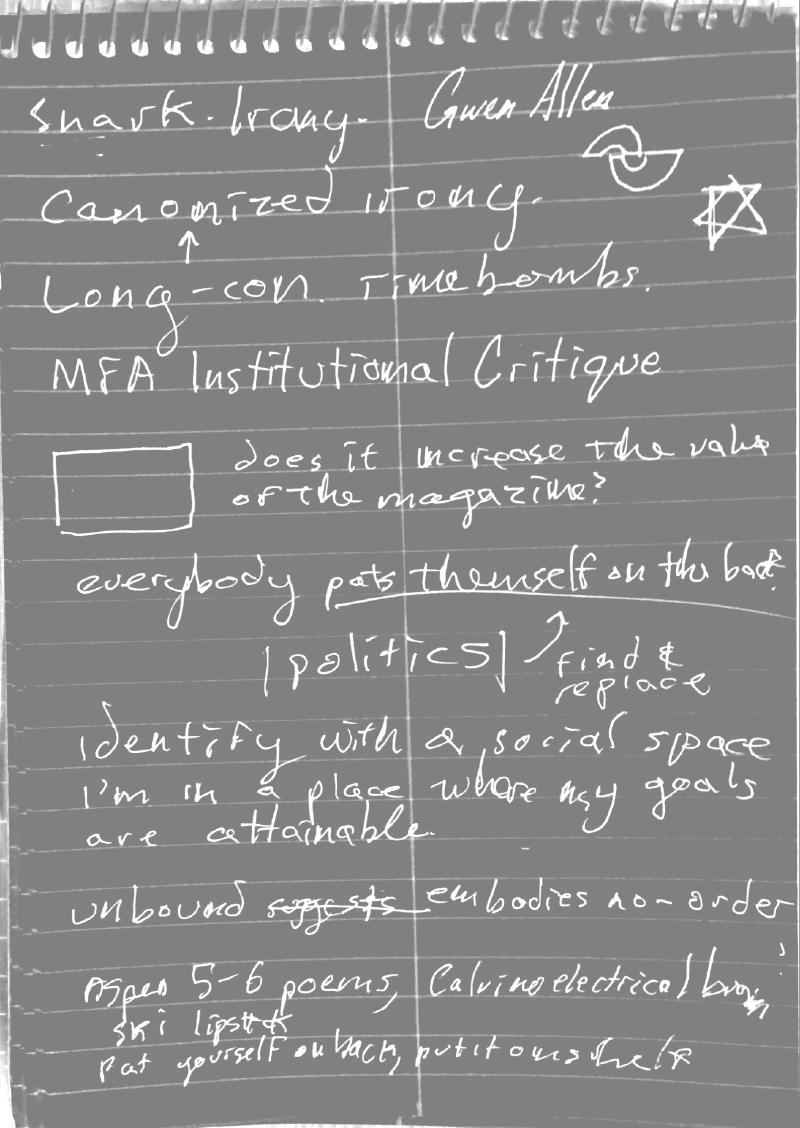 snark. Irony. Gwen Allen
Canonized irony.
Long-con. Timebombs.
MFA Institutional Critique
does it increase the value
of the magazine?
everybody pats themself on the back
|politics|
find &
replace
identify with a social space
I'm in a place where my goals
are attainable.
unbound suggests embodies no-order
Aspen 5-6 poems, Calvino electrical
ski lipstick
pat yourself on back, put it on shelf